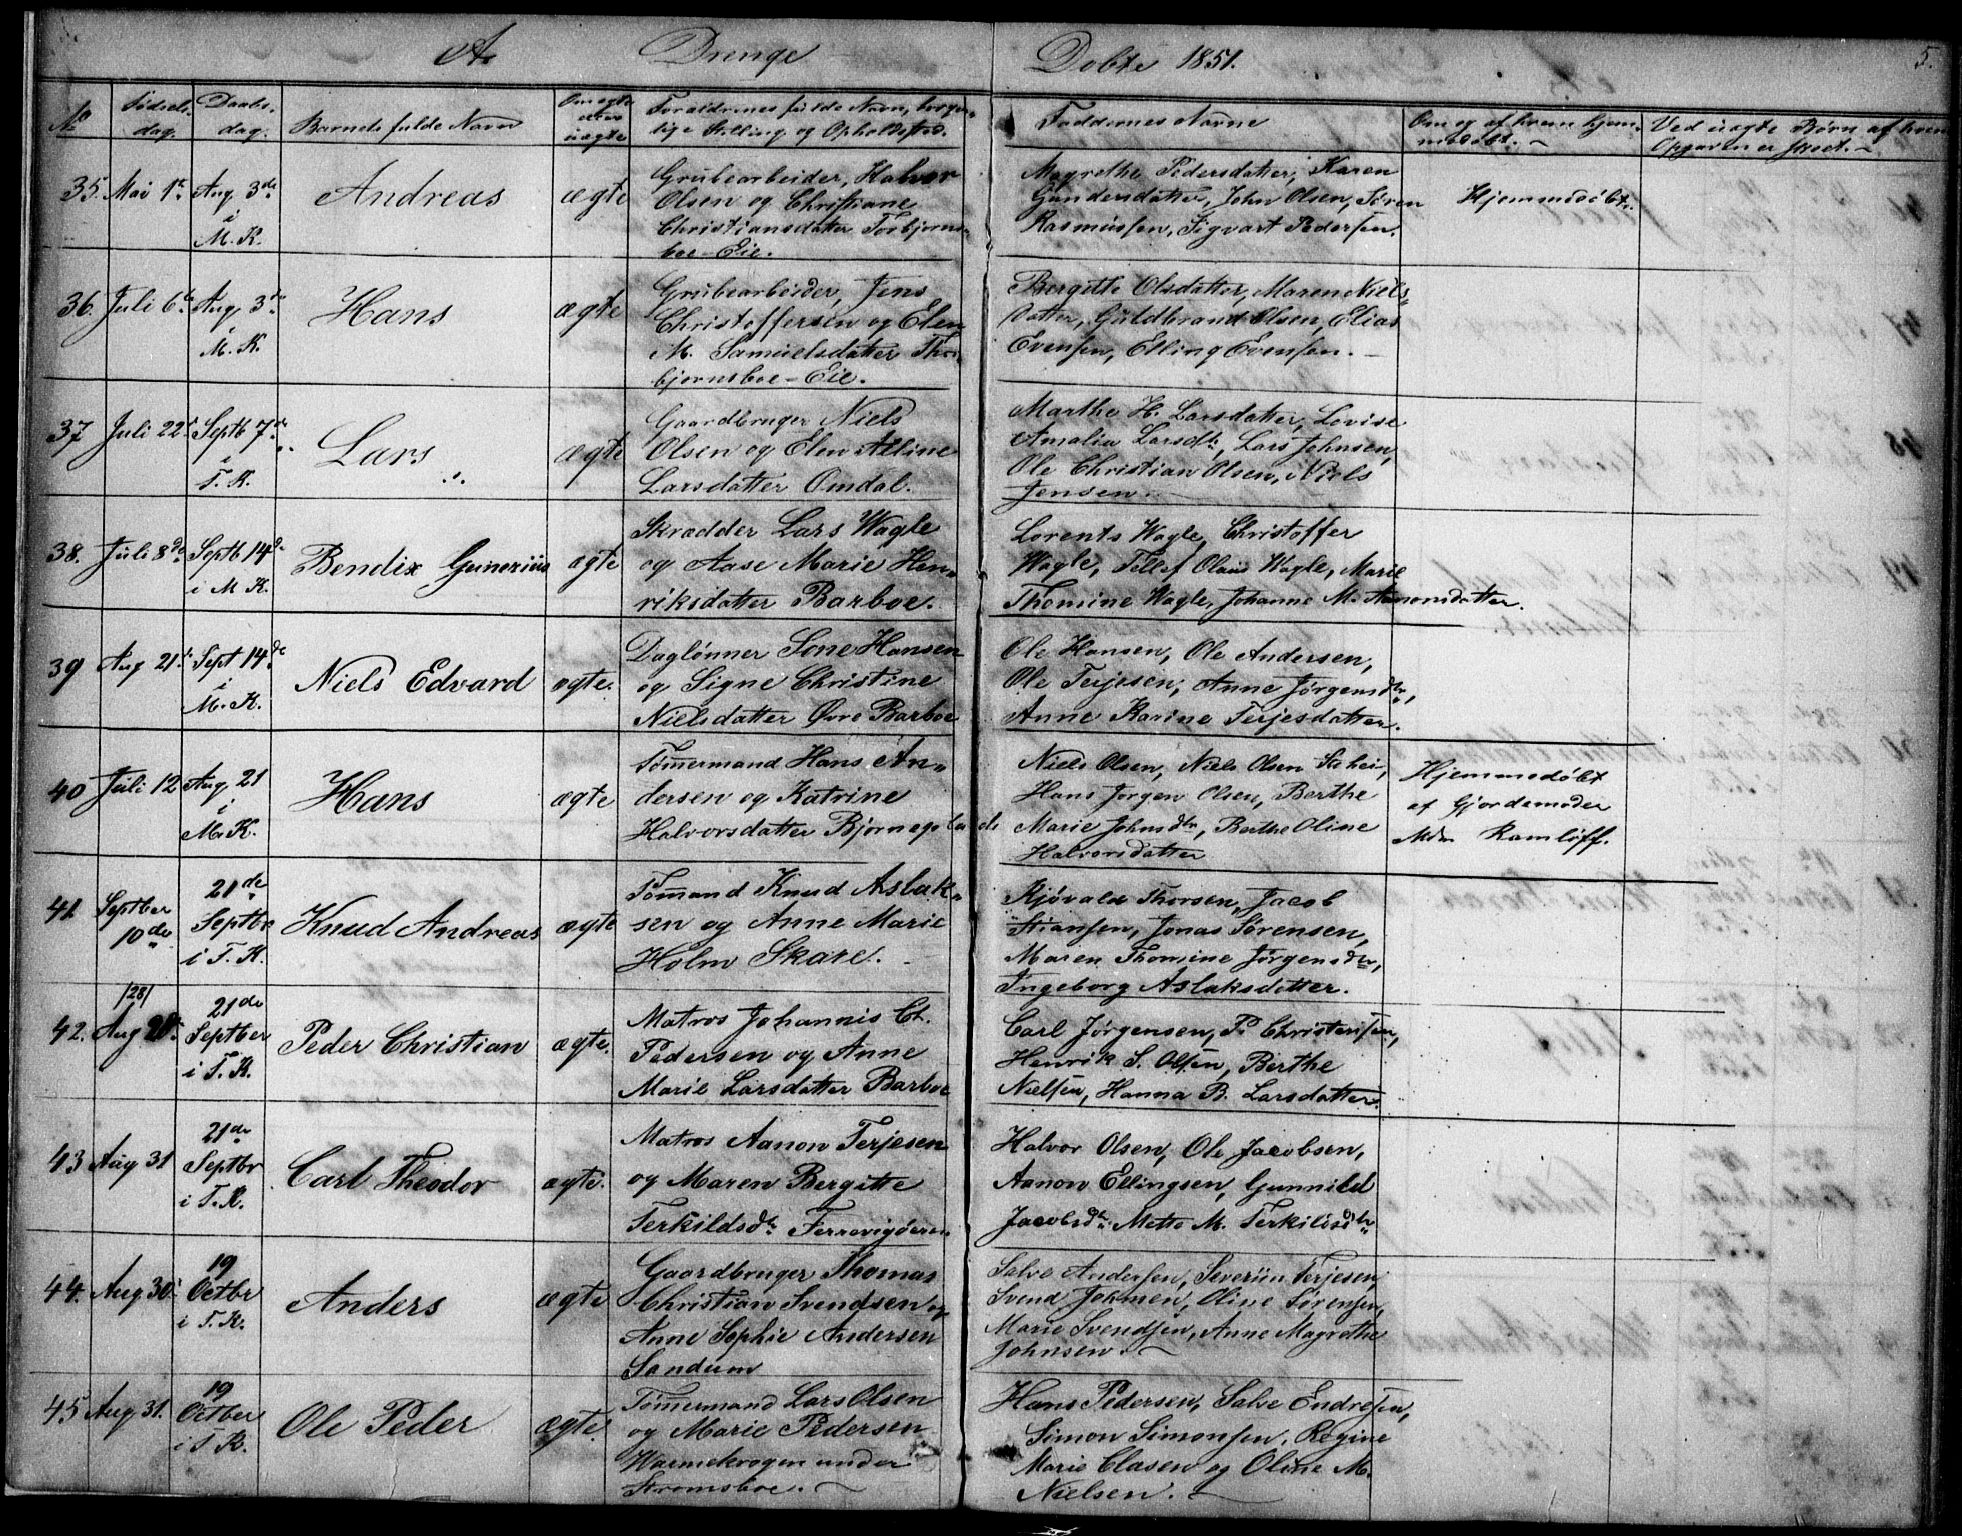 A. Drenge Døbte 1851. 5.
No Fødsels-dag. Daabs-dag. Barnets fulde Navn Om ægte eller uægte Forældrenes fulde Navn, borger-lige Stilling og Opholdssted. Faddernes Navne Om og af hvem hjem-medøbt. Ved uægte Børn af hvem Opgaven er skeet.
35. Mai 1te Aug 3de i M. K. Andreas ægte
Grubearbeider, Halvor
Olsen og Christiane
Christiansdatter Torbjørns-
boe-Eie.
Magrethe Pedersdatter, Karen
Gundersdatter, John Olsen, Søren
Rasmussen, Sigvart Pedersen.
Hjemmedøbt.
36. Juli 6te Aug 3de i M. K. Hans ægte
Grubearbeider, Jens
Christoffersen og Elen
M. Samuelsdatter Thor-
bjørnsboe-Eie.
Bergitte Olsdatter, Maren Niels
datter, Guldbrand Olsen, Elias
Evensen, Elling Evensen.
37 Juli 22 Septb 7de i T. K. Lars ægte
Gaardbruger Niels
Olsen og Elen Alline
Larsdatter Omdal.
Marthe H. Larsdatter, Lovise
Amalia Larsdtr, Lars Johnsen,
Ole Christian Olsen, Niels
Jensen.
38. Juli 8de Septb 14de i M K. Bendix Gunerius ægte
Skrædder Lars Wagle
og Aase Marie Hen-
riksdatter Barboe.
Lorents Wagle, Christoffer
Wagle, Tellef Olaus Wagle, Marie
Thomine Wagle, Johanne M. Aanonsdatter.
39 Aug 21 Sept 14de i M. K. Niels Edvard ægte.
Daglønner Sone Hansen
og Signe Christine
Nielsdatter Øvre Barboe
Ole Hansen, Ole Andersen,
Ole Terjesen, Anne Jørgensdtr,
Anne Karine Terjesdatter.
40 Juli 12 Aug 21 i M. K. Hans ægte
Tømermand Hans An-
dersen og Katrine
Halvorsdatter Bjørneplads
Niels Olsen, Niels Olsen
Hans Jørgen Olsen, Berthe
Marie Johnsdtr, Berthe Oline
Halvorsdatter
Hjemmedøbt
af Gjordemoder
Mdm Ramløff.
41 Septber 10de 21de Septbr i T. K. Knud Andreas ægte
Tømand Knud Aslak-
sen og Anne Marie
Holm Skare.
Thorsen, Jacob
Stiansen, Jonas Sørensen,
Maren Thomine Jørgensdtr,
Ingeborg Aslaksdatter.
42. /28/ Aug 21de Septber i T. K. Peder Christian ægte.
Matros Johannis Ch.
Pedersen og Anne
Marie Larsdatter Barboe
Carl Jørgensen, P. Christensen,
Henrik S. Olsen, Berthe
Nielsen, Hanna B. Larsdatter.
43 Aug 31 21de Septbr i T. K. Carl Theodor ægte.
Matros Aanon Terjesen
og Maren Bergitte
Terkildsdtr
Halvor Olsen, Ole Jacobsen,
Aanon Ellingsen, Gunnild
Jacobsdtr Mette M. Terkildsdtr
44. Aug 30 19 Octbr i T. K. Anders ægte
Gaardbruger Thomas
Christian Svendsen og
Anne Sophie Andersen
Sandum
Salve Andersen, Severin Terjesen
Svend Johnsen, Oline Sørensen,
Marie Svendsen, Anne Magrethe
Johnsen.
45 Aug 31. 19 Octber i T K. Ole Peder ægte.
Tømermand Lars Olsen
og Marie Pedersen
Warmekrogen under
Strømsboe.
Hans Pedersen, Salve Endresen,
Simon Simonsen, Regine
Marie Clasen og Oline M.
Nielsen.